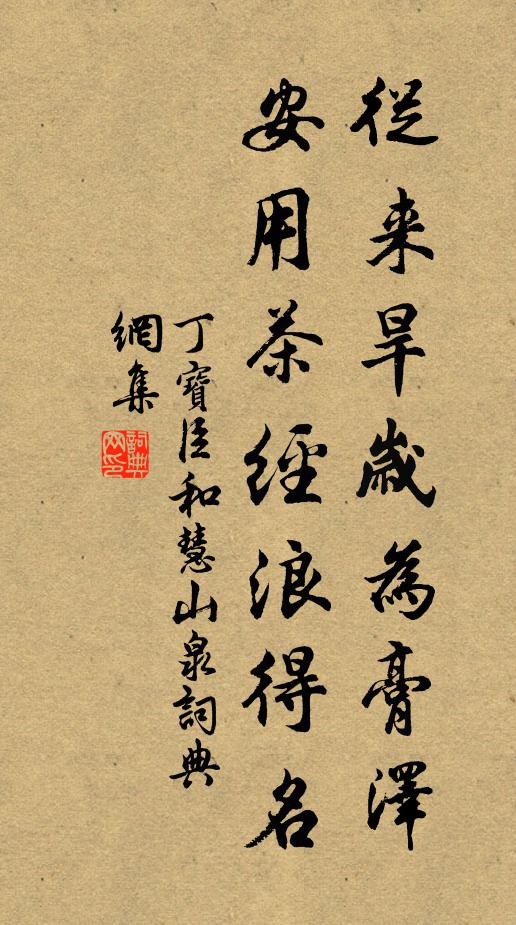 從来旱歲為膏澤
安用茶經浪得名
丁寶臣和慧山泉詞典
網集
詞典網印